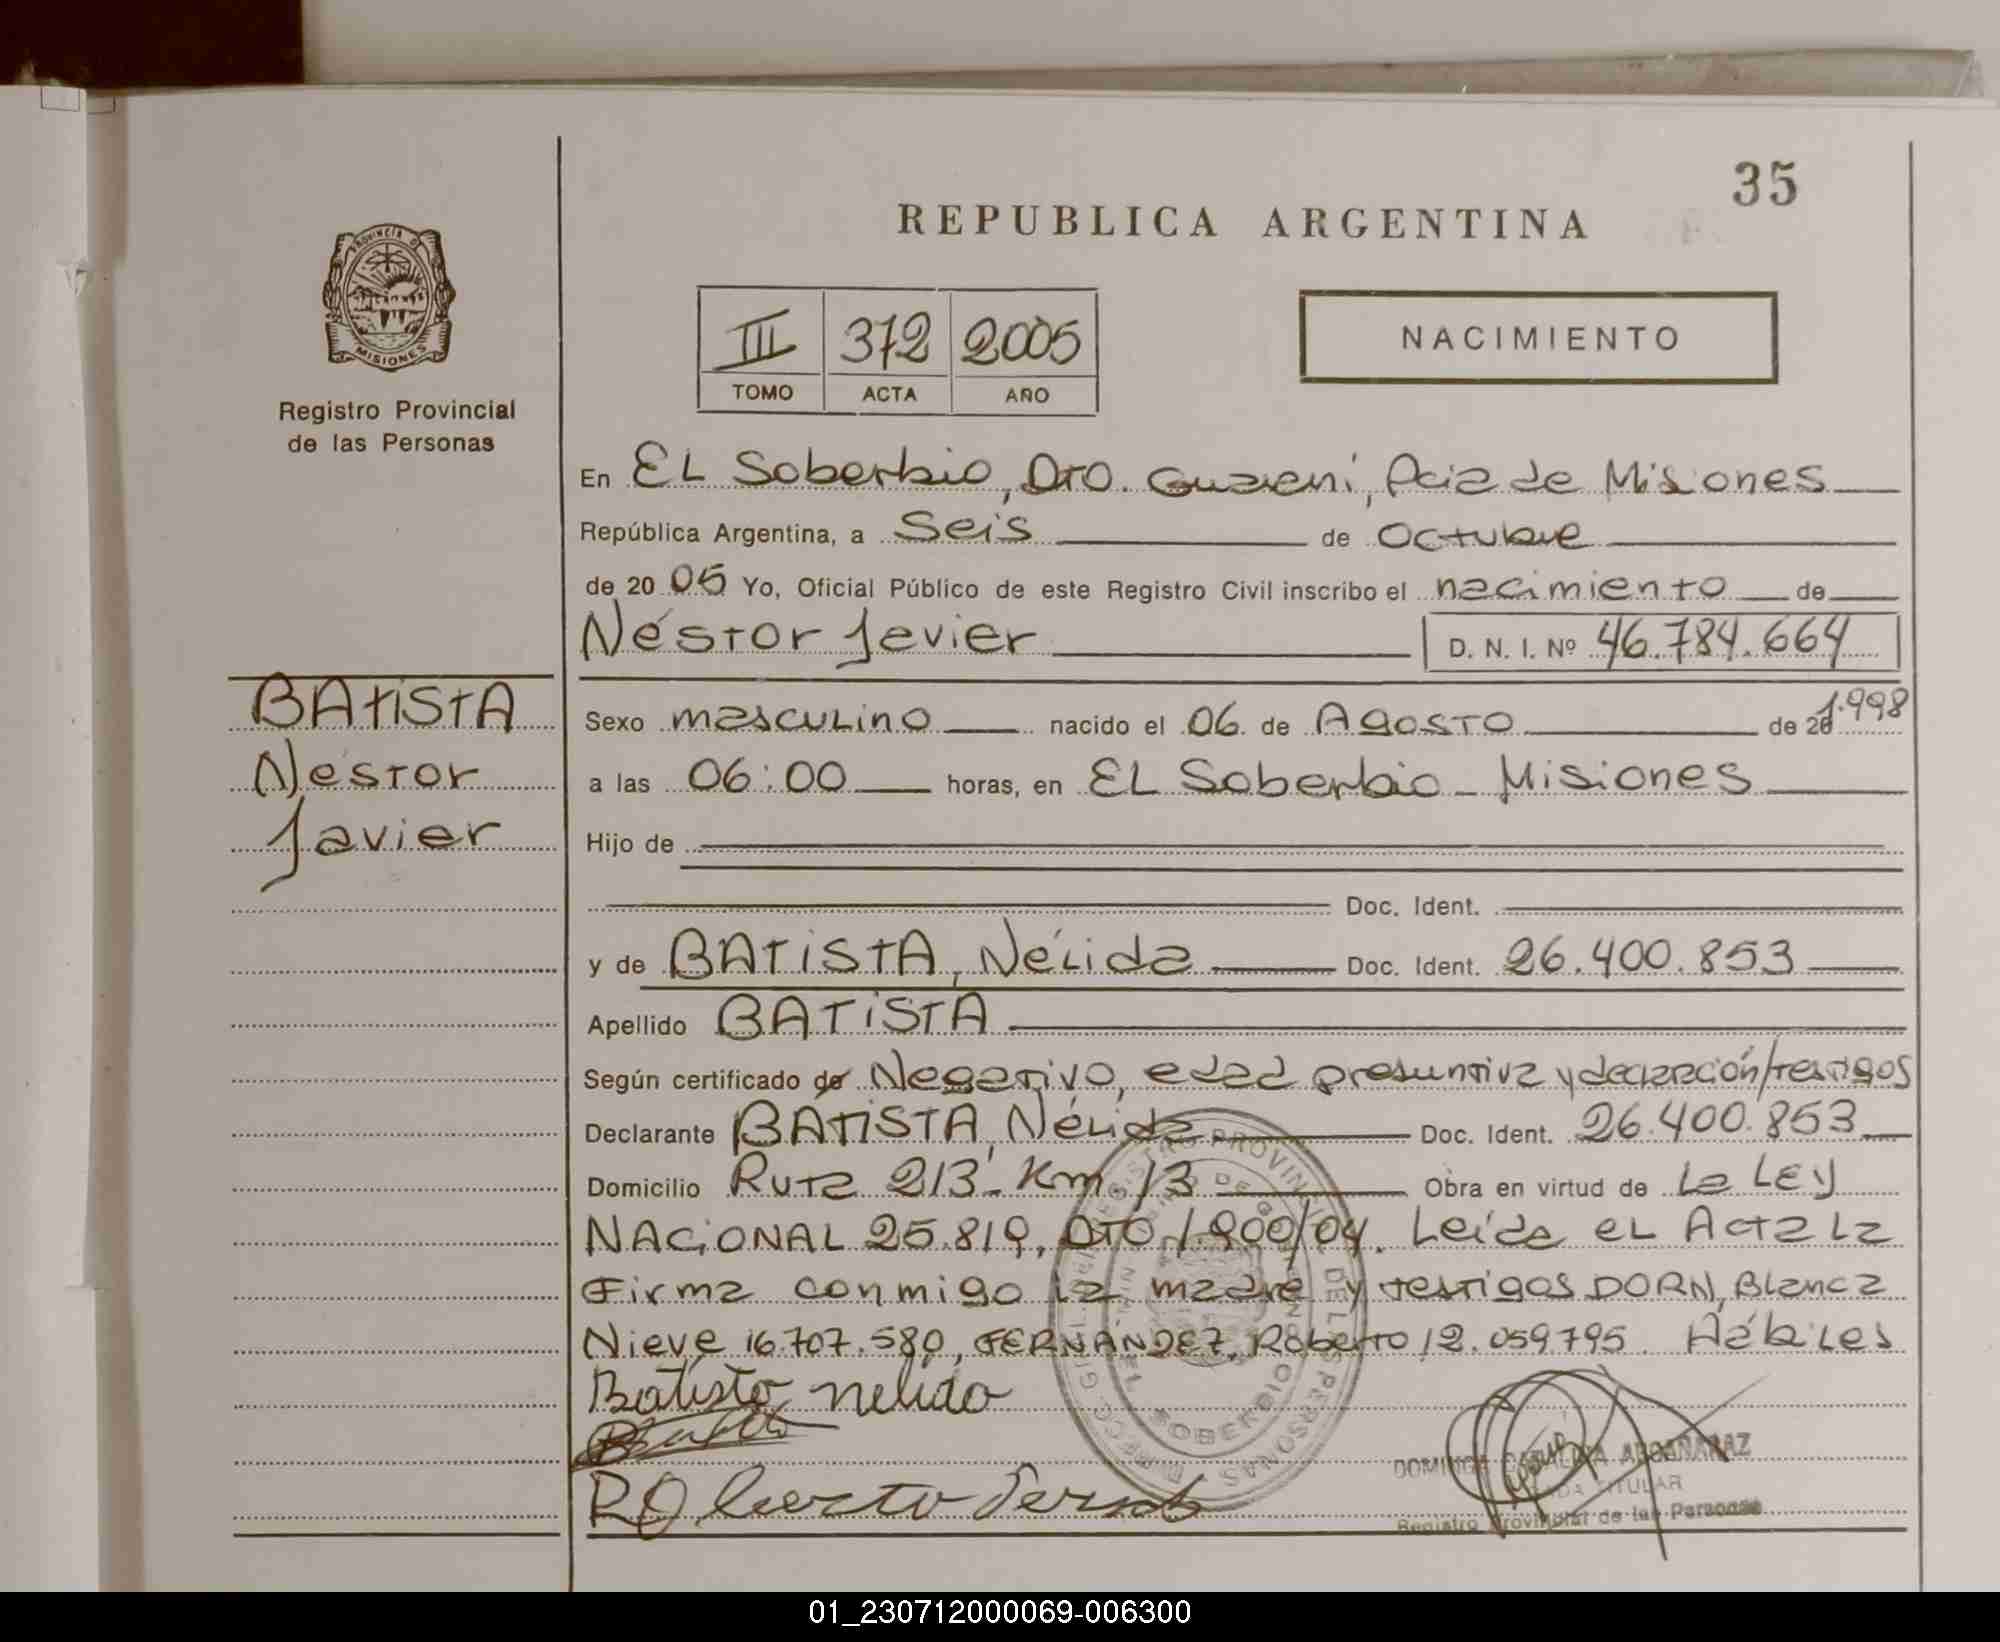 35
REPUBLICA ARGENTINA
PROVINCIA D
MISIONES
Registro Provincial
de las Personas
III 372 2005
TOMO ACTA AÑO
NACIMIENTO
En EL Soberbio, Dto. Guaraní, Pcia de Misiones
República Argentina, a Seis de Octubre
de 20 05 Yo, Oficial Público de este Registro Civil inscribo el nacimiento de
Néstor Javier D. N. I. Nº 46.784.664
BATISTA
Néstor
Javier
Sexo masculino nacido el 06 de Agosto de 20 1.998
a las 06:00 horas, en EL Soberbio - Misiones
Hijo de
Doc. Ident.
y de BATISTA, Nélida Doc. Ident. 26.400.853
Apellido BATISTA
Según certificado de Negativo, edad presuntiva y declaración/testigos
Declarante BATISTA, Nélida Doc. Ident. 26.400.853
Domicilio Ruta 213 - Km 13 Obra en virtud de La LEY
NACIONAL 25.819, DTO 1.900/04. Leída el Acta La
Firma conmigo la madre y testigos DORN, Blanca
Nieve 16.707.580, FERNANDEZ, Roberto 12.059795 Hábiles
Batista nelida
Roberto
DOMINGA CATALINA ARGAÑARAZ
TITULAR
Registro Provincial de las Personas
REGISTRO PROVINCIAL DE LAS PERSONAS
SOBERBIO
01_230712000069-006300